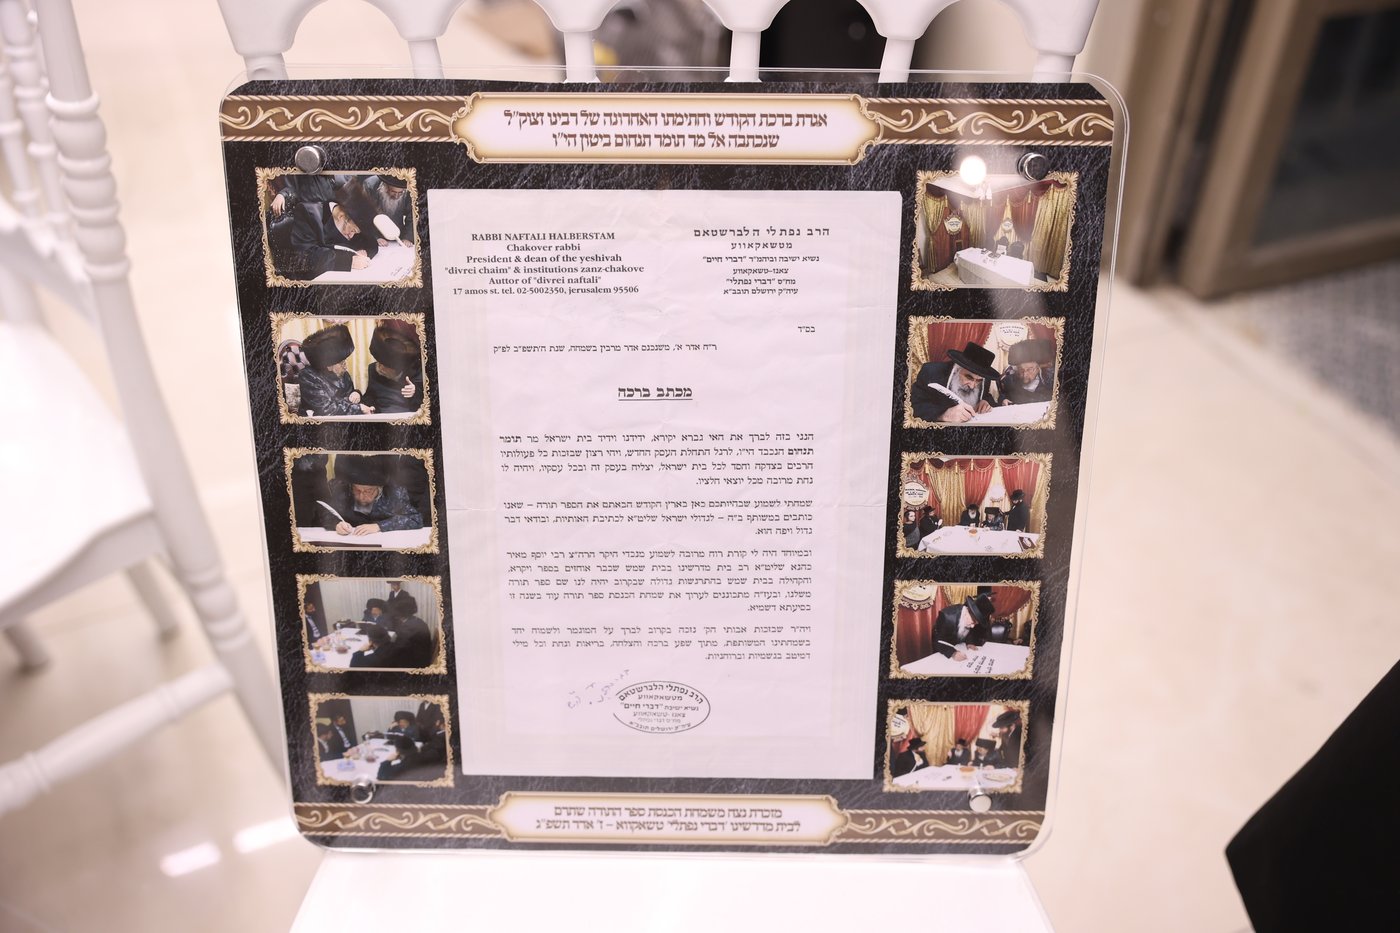 אגרת ברכת הקודש וחתימתו האחרונה של רבינו זצוק"ל
שנכתבה אל מר תומר תנחום ביטון הי"ו
RABBI NAFTALI HALBERSTAM
Chakover rabbi
President & dean of the yeshivah
"divrei chaim" & institutions zanz-chakove
Auttor of "divrei naftali"
17 amos st. tel. 02-5002350, jerusalem 95506
הרב נפתלי הלברשטאם
מטשאקאווע
נשיא ישיבה וביהמ"ד "דברי חיים"
צאנז-טשאקאווע
מח"ס "דברי נפתלי"
עיה"ק ירושלם תובב"א
בס"ד
ר"ח אדר א', משנכנס אדר מרבין בשמחה, שנת ה'תשפ"ב לפ"ק
מכתב ברכה
הנני בזה לברך את האי גברא יקירא, ידידנו וידיד בית ישראל מר תומר
תנחום הנכבד הי"ו, לרגל התחלת העסק החדש, ויהי רצון שבזכות כל פעולותיו
הרבים בצדקה וחסד לכל בית ישראל, יצליח בעסק זה ובכל עסקיו, ויהיה לו
נחת מרובה מכל יוצאי חלציו.
שמחתי לשמוע שבהיותכם כאן בארץ הקודש הבאתם את הספר תורה – שאנו
כותבים במשותף ב"ה – לגדולי ישראל שליט"א לכתיבת האותיות, ובודאי דבר
גדול ויפה הוא.
ובמיוחד היה לי קורת רוח מרובה לשמוע מנכדי היקר הרה"צ רבי יוסף מאיר
כהנא שליט"א רב בית מדרשינו בבית שמש שכבר אוחזים בספר ויקרא,
והקהילה בבית שמש בהתרגשות גדולה שבקרוב יהיה לנו שם ספר תורה
משלנו, ובעז"ה מתכוננים לערוך את שמחת הכנסת ספר תורה עוד בשנה זו
בסיעתא דשמיא.
ויה"ר שבזכות אבותי הק' נזכה בקרוב לברך על המוגמר ולשמוח יחד
בשמחתינו המשותפת, מתוך שפע ברכה והצלחה, בריאות ונחת וכל מילי
דמיטב בגשמיות וברוחניות.
הרב נפתלי הלברשטאם
מטשאקאווע
נשיא ישיבת "דברי חיים"
צאנז-טשאקאווע
מח"ס דברי נפתלי
עיה"ק ירושלים תובב"א
מזכרת נצח משמחת הכנסת ספר התורה שתרם
לבית מדרשינו 'דברי נפתלי' טשאקווא – ז' אדר תשפ"ג